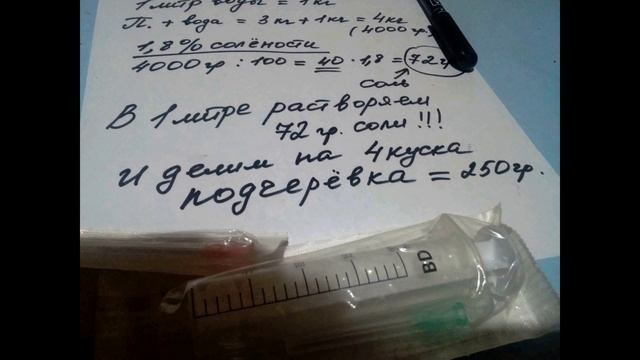 1 литр воды = 1кг
П. + вода = 3кг + 1кг = 4кг
(4000гр)
1,8% солёности
4000гр : 100 = 40 · 1,8 = 72гр
соль
В 1 литре растворяем
72 гр. соли!!!
И делим на 4 куска
подчерёвка = 250гр.
BD